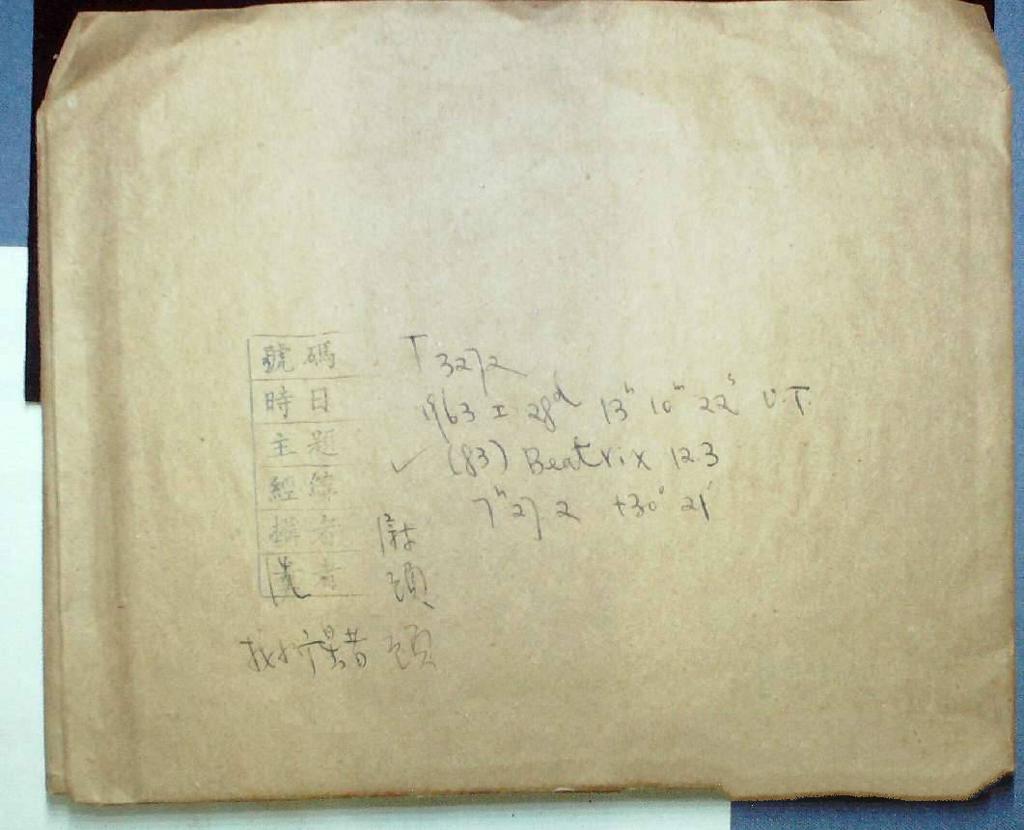 號碼 T 3272
時日 1963 I 28d 13h 10m 22s U.T.
主題 ✓ (83) Beatrix 123
經緯 7h 27.2 +30° 21'
撰者
者
找小行星者